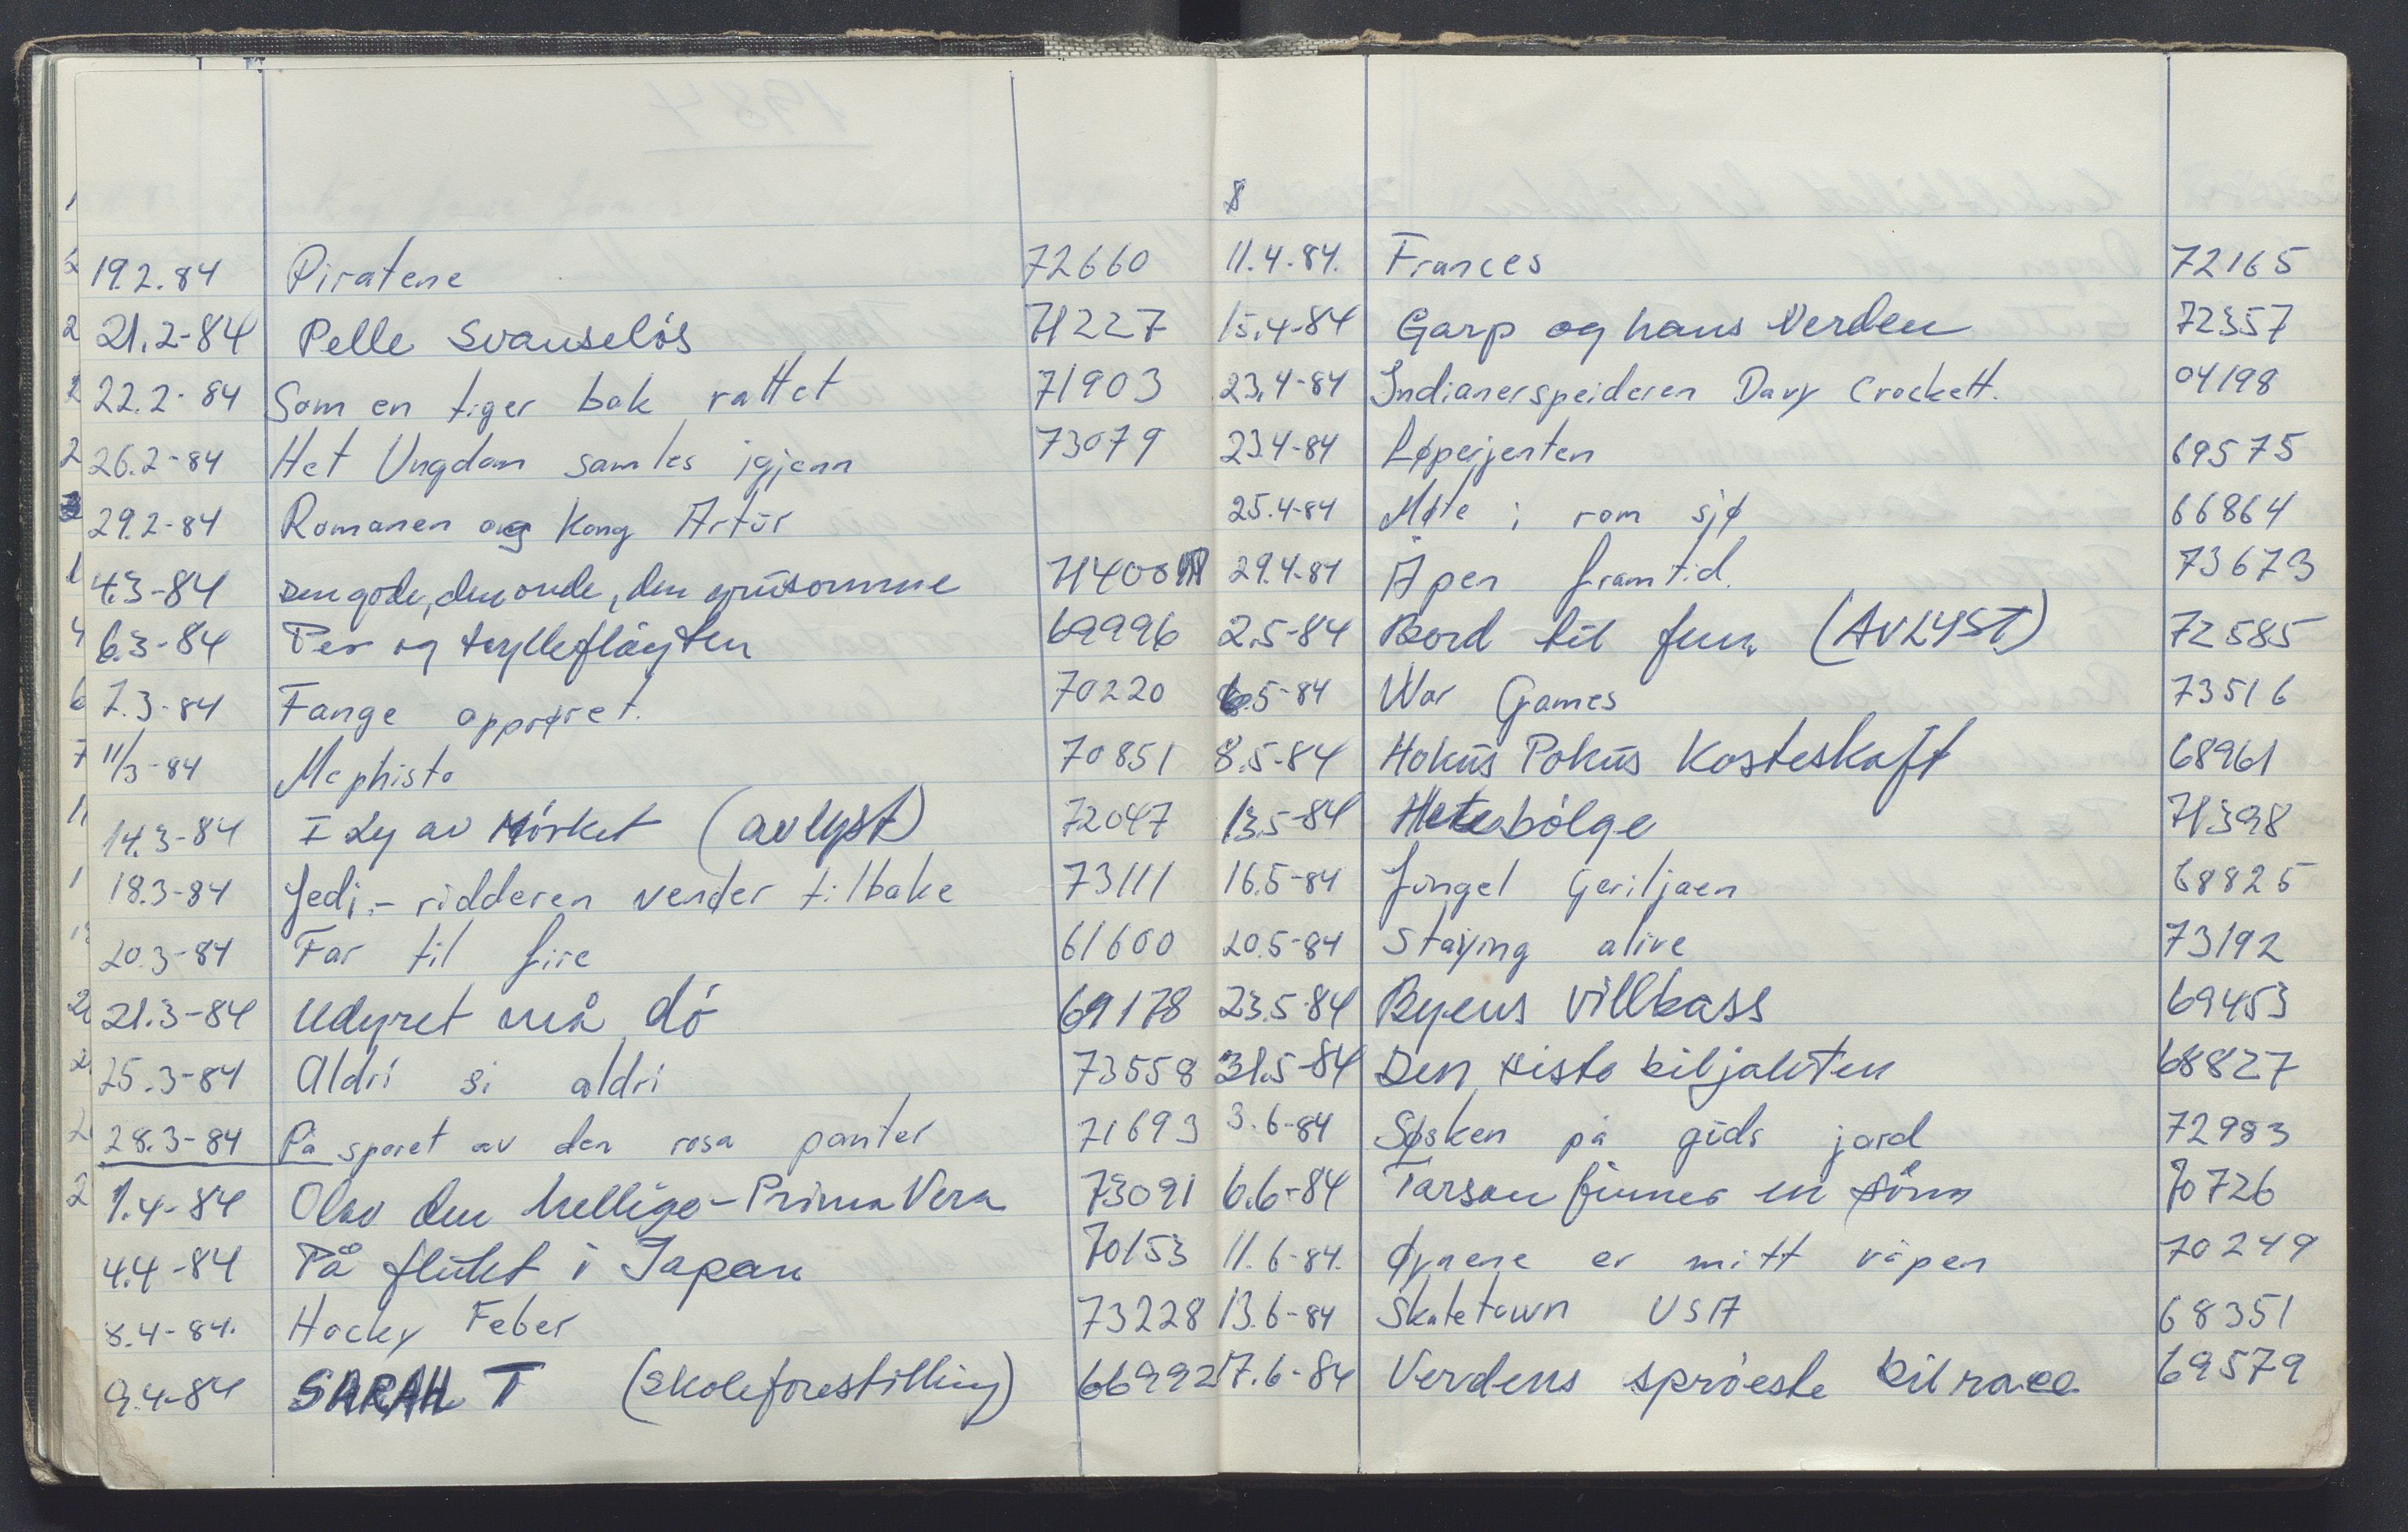 19.2.84 Piratene 72660
21.2-84 Pelle Svanseløs 71227
22.2-84 Som en tiger bak rattet 71903
26.2-84 Het Ungdom samles igjenn 73079
29.2-84 Romanen og Kong Artur
4.3-84 Den gode, den onde, den grusomme 71400
6.3-84 Per og tryllefløyten 69996
7.3-84 Fange opprøret. 70220
11/3-84 Mephisto 70851
14.3-84 I Ly av Mørket (avlyst) 72047
18.3-84 Jedi-ridderen vender tilbake 73111
20.3-84 Far til fire 61600
21.3-84 Udyret må dø 69178
25.3-84 Aldri si aldri 73558
28.3-84 På sporet av den rosa panter 71693
1.4-84 Olav den hellige - Prima Vera 73091
4.4-84 På flukt i Japan 70153
8.4-84. Hocky Feber 73228
9.4-84 SARAH T (Skoleforestilling) 66992
8
11.4-84. Frances 72165
15.4-84 Garp og hans Verden 72357
23.4-84 Indianerspeideren Davy Crockett. 04198
23.4-84 Løperjenten 69575
25.4-84 Møte i rom sjø 66864
29.4-84 Åpen framtid. 73673
2.5-84 Bord til fem (AVLYST) 72585
6.5-84 War Games 73516
8.5-84 Hokus Pokus Kosteskaft 68961
13.5-84 Hetebølge 71398
16.5-84 Jungel Geriljaen 68825
20.5-84 Staying alive 73192
23.5-84 Byens Villbass 69453
31.5-84 Den siste biljakten 68827
3.6-84 Søsken på guds jord 72983
6.6-84 Tarsan finner en sønn 70726
11.6-84. Øynene er mitt våpen 70249
13.6-84 Skatetown USA 68351
17.6-84 Verdens sprøeste bilrace 69579